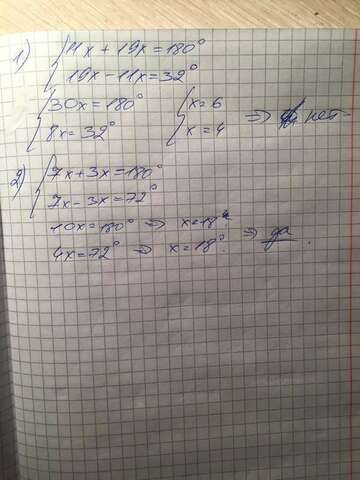 1) { 11x + 19x = 180°
19x - 11x = 32°
{ 30x = 180° { x = 6 ⇒ нет
8x = 32° x = 4
2) { 7x + 3x = 180°
7x - 3x = 72°
10x = 180° ⇒ x = 18°
4x = 72° ⇒ x = 18° ⇒ да.